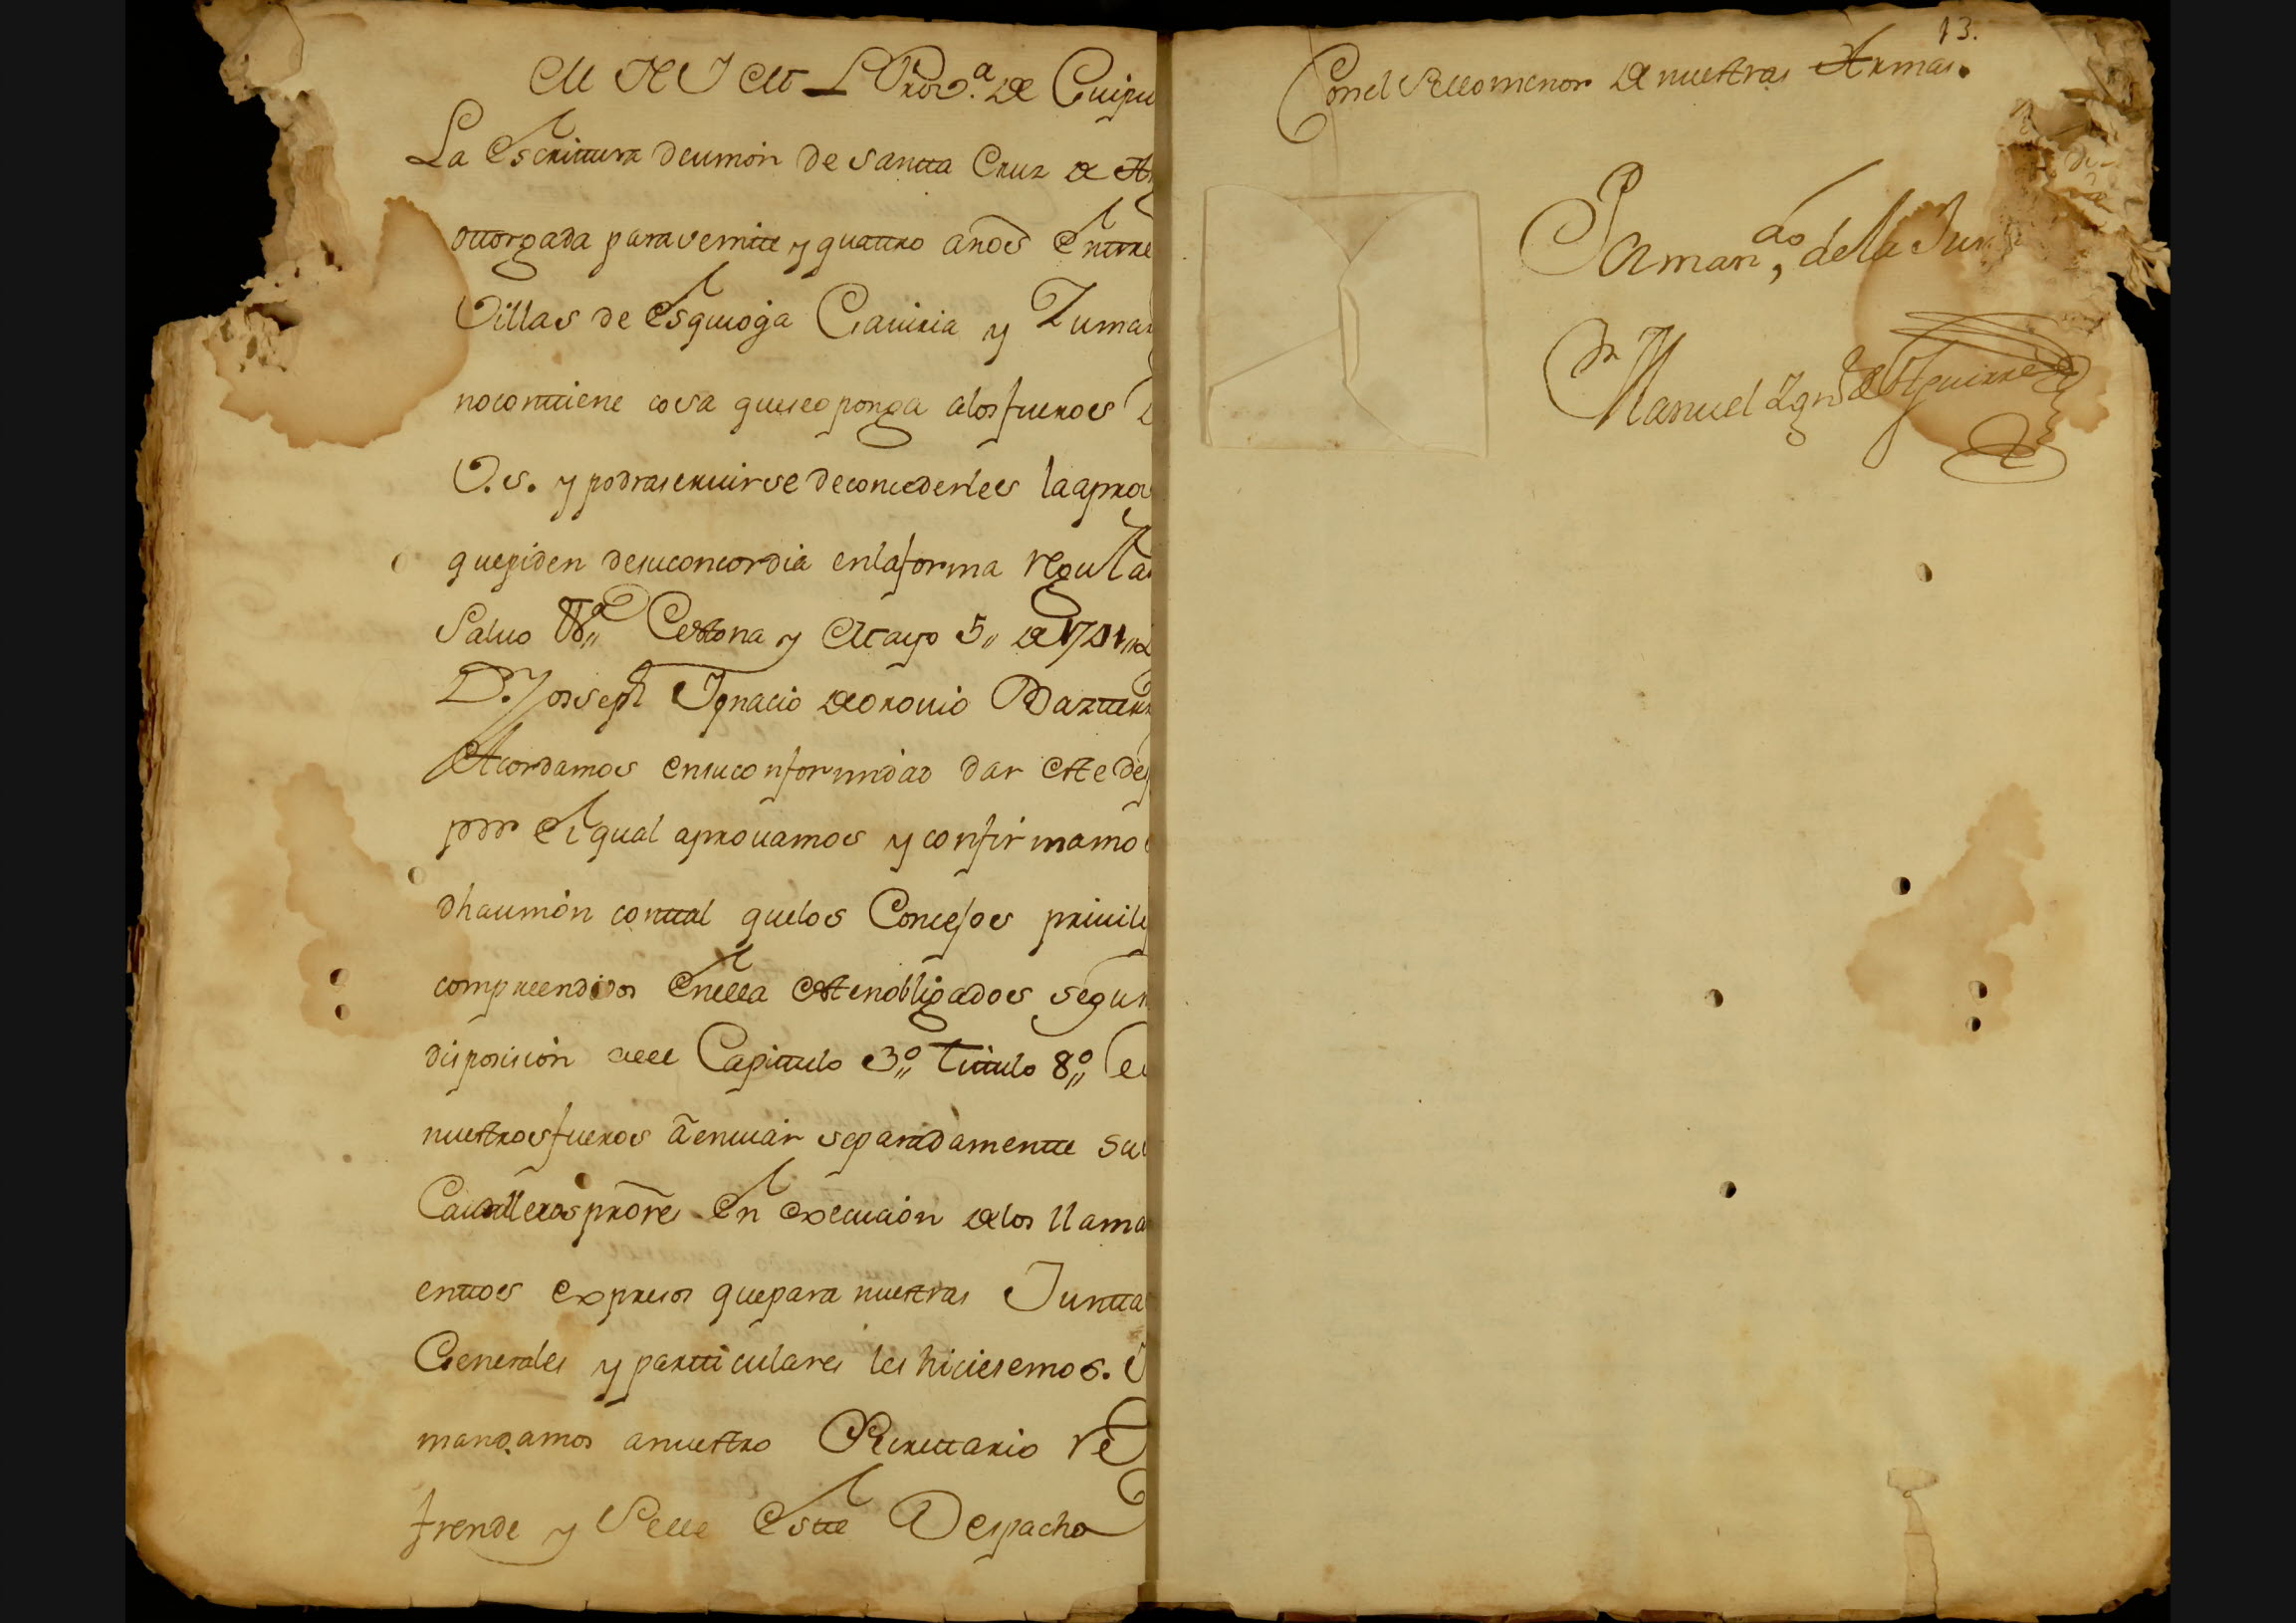 M N Y M L Prov.ª de Guipu
La Escrittura deunión de Santta Cruz de Ar
ottorgada paraveintte y quattro años Enttre
Villas de Esquioga Gaviria y Zumar
nocontiene cosa queseoponga alosfueros d
V.S. y podraseruirse deconcederles laaprov
quepiden desuconcordia enlaforma regular
Saluo Vª Cestona y Mayo 5,, de 1741,,
D. Joseph Ygnacio deorouio Baztterr
Acordamos ensuconformidad dar estedes
por elqual aprouamos yconfirmamos
dhaunión conttal quelos Concejos privileg
compreendidos Enella estenobligados segun
disposición dell Capittulo 3º,, tittulo 8º,, de
nuestrosfueros áenuiar separadamentte sus
Cauallerosprores En execución delos llama
enttos expresos quepara nuestras Juntta
Generales y partticulares les hiciesemos. Y
mandamos anuestro Secrettario re
frende y Selle Estte Despacho
13.
Conel Sellomenor de nuestras Armas.
Por mando, dela Junta
Dn Manuel Ygnº de Aguirre